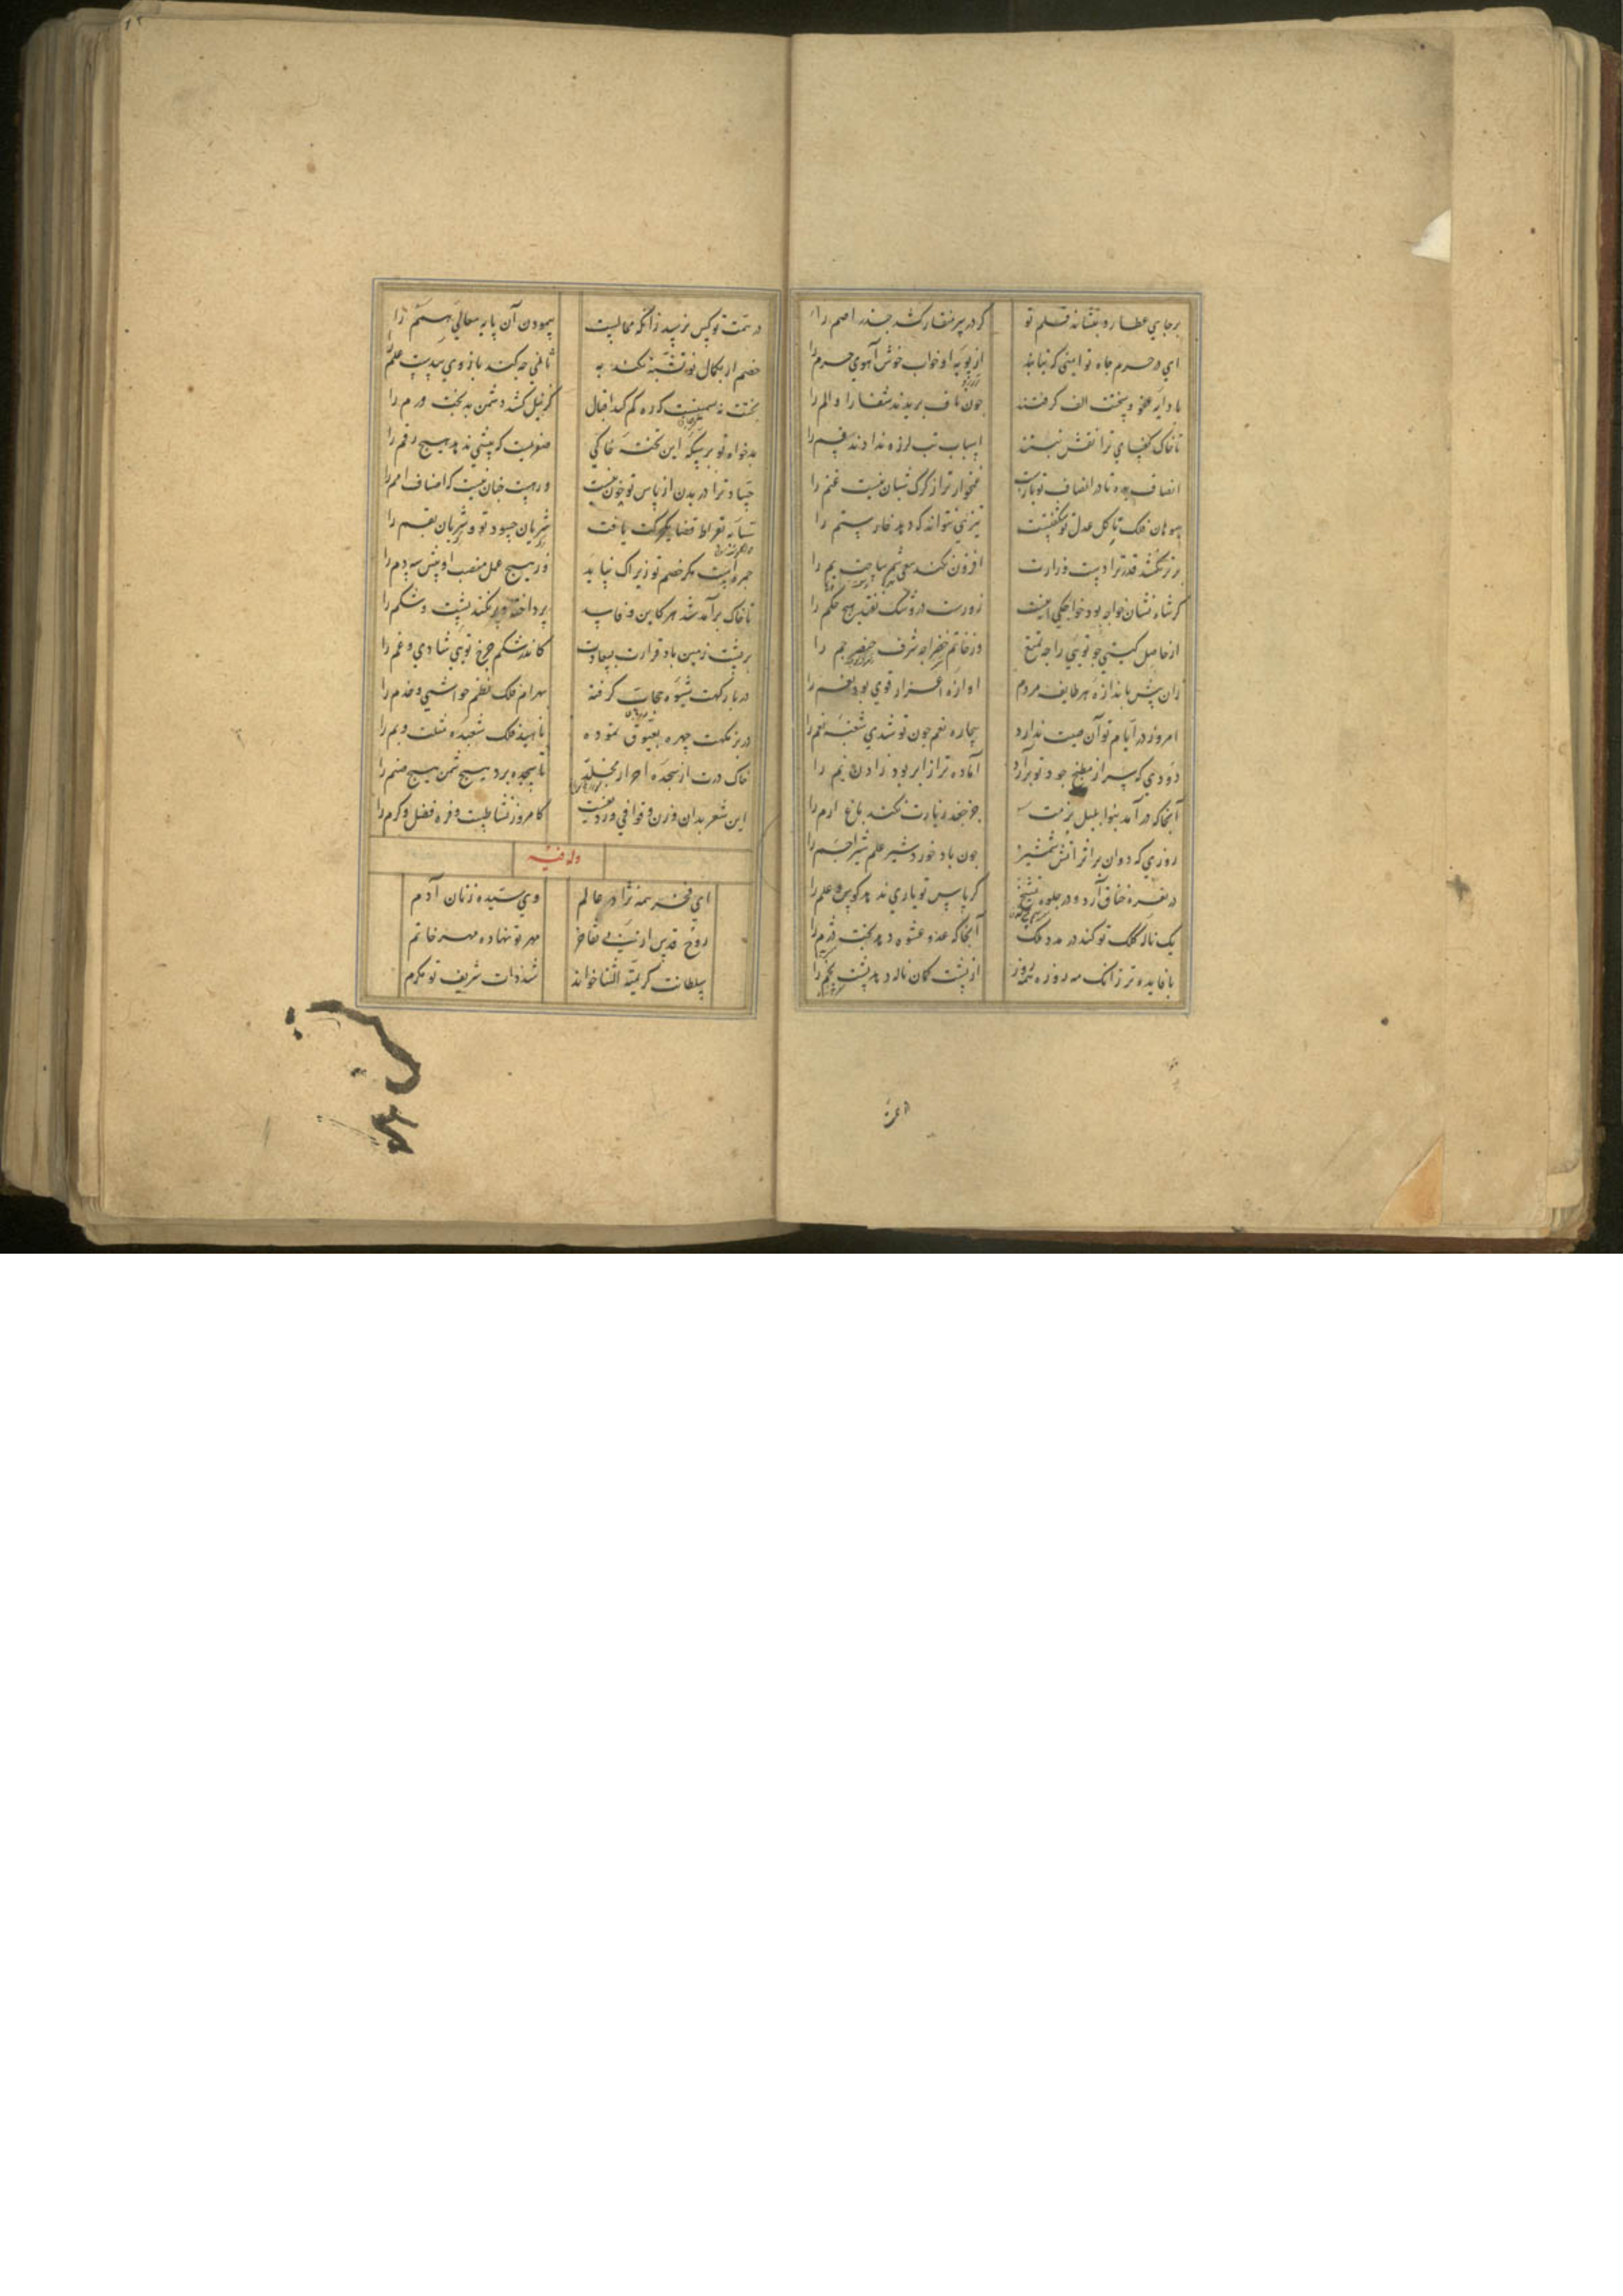 بر جاي عطارد بنشاند قلم تو
کر در سر منقار کشد جذر اصم را
اي در حرم جاه تو امنی که نیابد
از پویه او خواب خوش آهوي حرم را
با دایه عفو و سخطت الف کرفتند
چون ناف بریدند شفا را و الم را
تا خاک کف پاي ترا نقش نبستند
اسباب تب لرزه ندادند قسم را
انصاف بده تا در انصاف تو بازست
غمخوار تر از کرک شبان نیست غنم را
سوهان فلک تا کل عدل تو شکفتست
تیزي نتواند که دهد خار ستم را
بر ترکشد قدر ترا دست وزارت
افزون نکند سعي شمر ساحت یم را
کر شاه نشان خواجه بود خواجکي اینست
از حاصل کیتي چو تويي را چه تمتع
در خاتم خضرا چه شرف خنصر جم را
زان پیش باندازه هر طایفه مردم
امروز در ایام تو آن صیت ندارد
بیچاره نعم چون تو شدي شعبه نعم را
دودي که سر از مطبخ جود تو برآرد
آماده تر از ابر بود زادن نم را
آنجا که درآمد بنوا بلبل بزمت
جز جغد زیارت نکند باغ ارم را
روزي که دوان بر اثر آتش شمشیر
چون باد خورد شیر علم شیر اجم را
کر پاس تو یاري ندهد کوس و علم را
یک ناله کلک تو کند در مدد ملک
آنجا که عدو عشوه دهد بخت دژم را
با فایده تر زانک همه روزه همه روز
از پشت کمان ناله دهد پشت بخم را
در همت تو کس نرسید زانکه محالست
پیمودن آن پایه معالي همم را
خصم ار بکمال تو تشبه نکند به
تا بلخي چه کند بازوي سدست علم را
بختت نه سمینیست که ره کم کند اقبال
کر نیل کشد دشمن بدبخت ورم را
بدخواه تو بر سکه این تخته خاکي
صفریست که بیشي ندهد هیچ رقم را
جساد ترا در بدن از پاس تو خون نیست
شریان حسود تو و شریان بقم را
جمره است مکر خصم تو زیراک نیابد
در هیچ عمل منصب او پیش سه دم را
تا خاک برآمد شد هر کاین و فاسد
پرداخته و پر نکند پشت و شکم را
بر پشت زمین باد قرارت بسعادت
کاندر شکم چرخ تويي شادي و غم را
در بارکهت شیوه حجاب کرفته
بهرام فلک نظم حواشي و خدم را
در بزمکهت چهره بعیوق نموده
ناهید فلک شعبده مثلث و بم را
خاک درت از سجده احرار مجدر
تا سجده برد هیچ شمن هیچ صنم را
این شعر بدان وزن و قوافي و ردیفست
کامروز نشاطیست و فره فضل و کرم را
وله فیه
اي فخر همه نژاد عالم
وي سیده زنان آدم
روح قدس از پي تفاخر
مهر تو نهاده مهر خاتم
سلطانت کریمة النسا خواند
شد ذات شریف تو مکرم